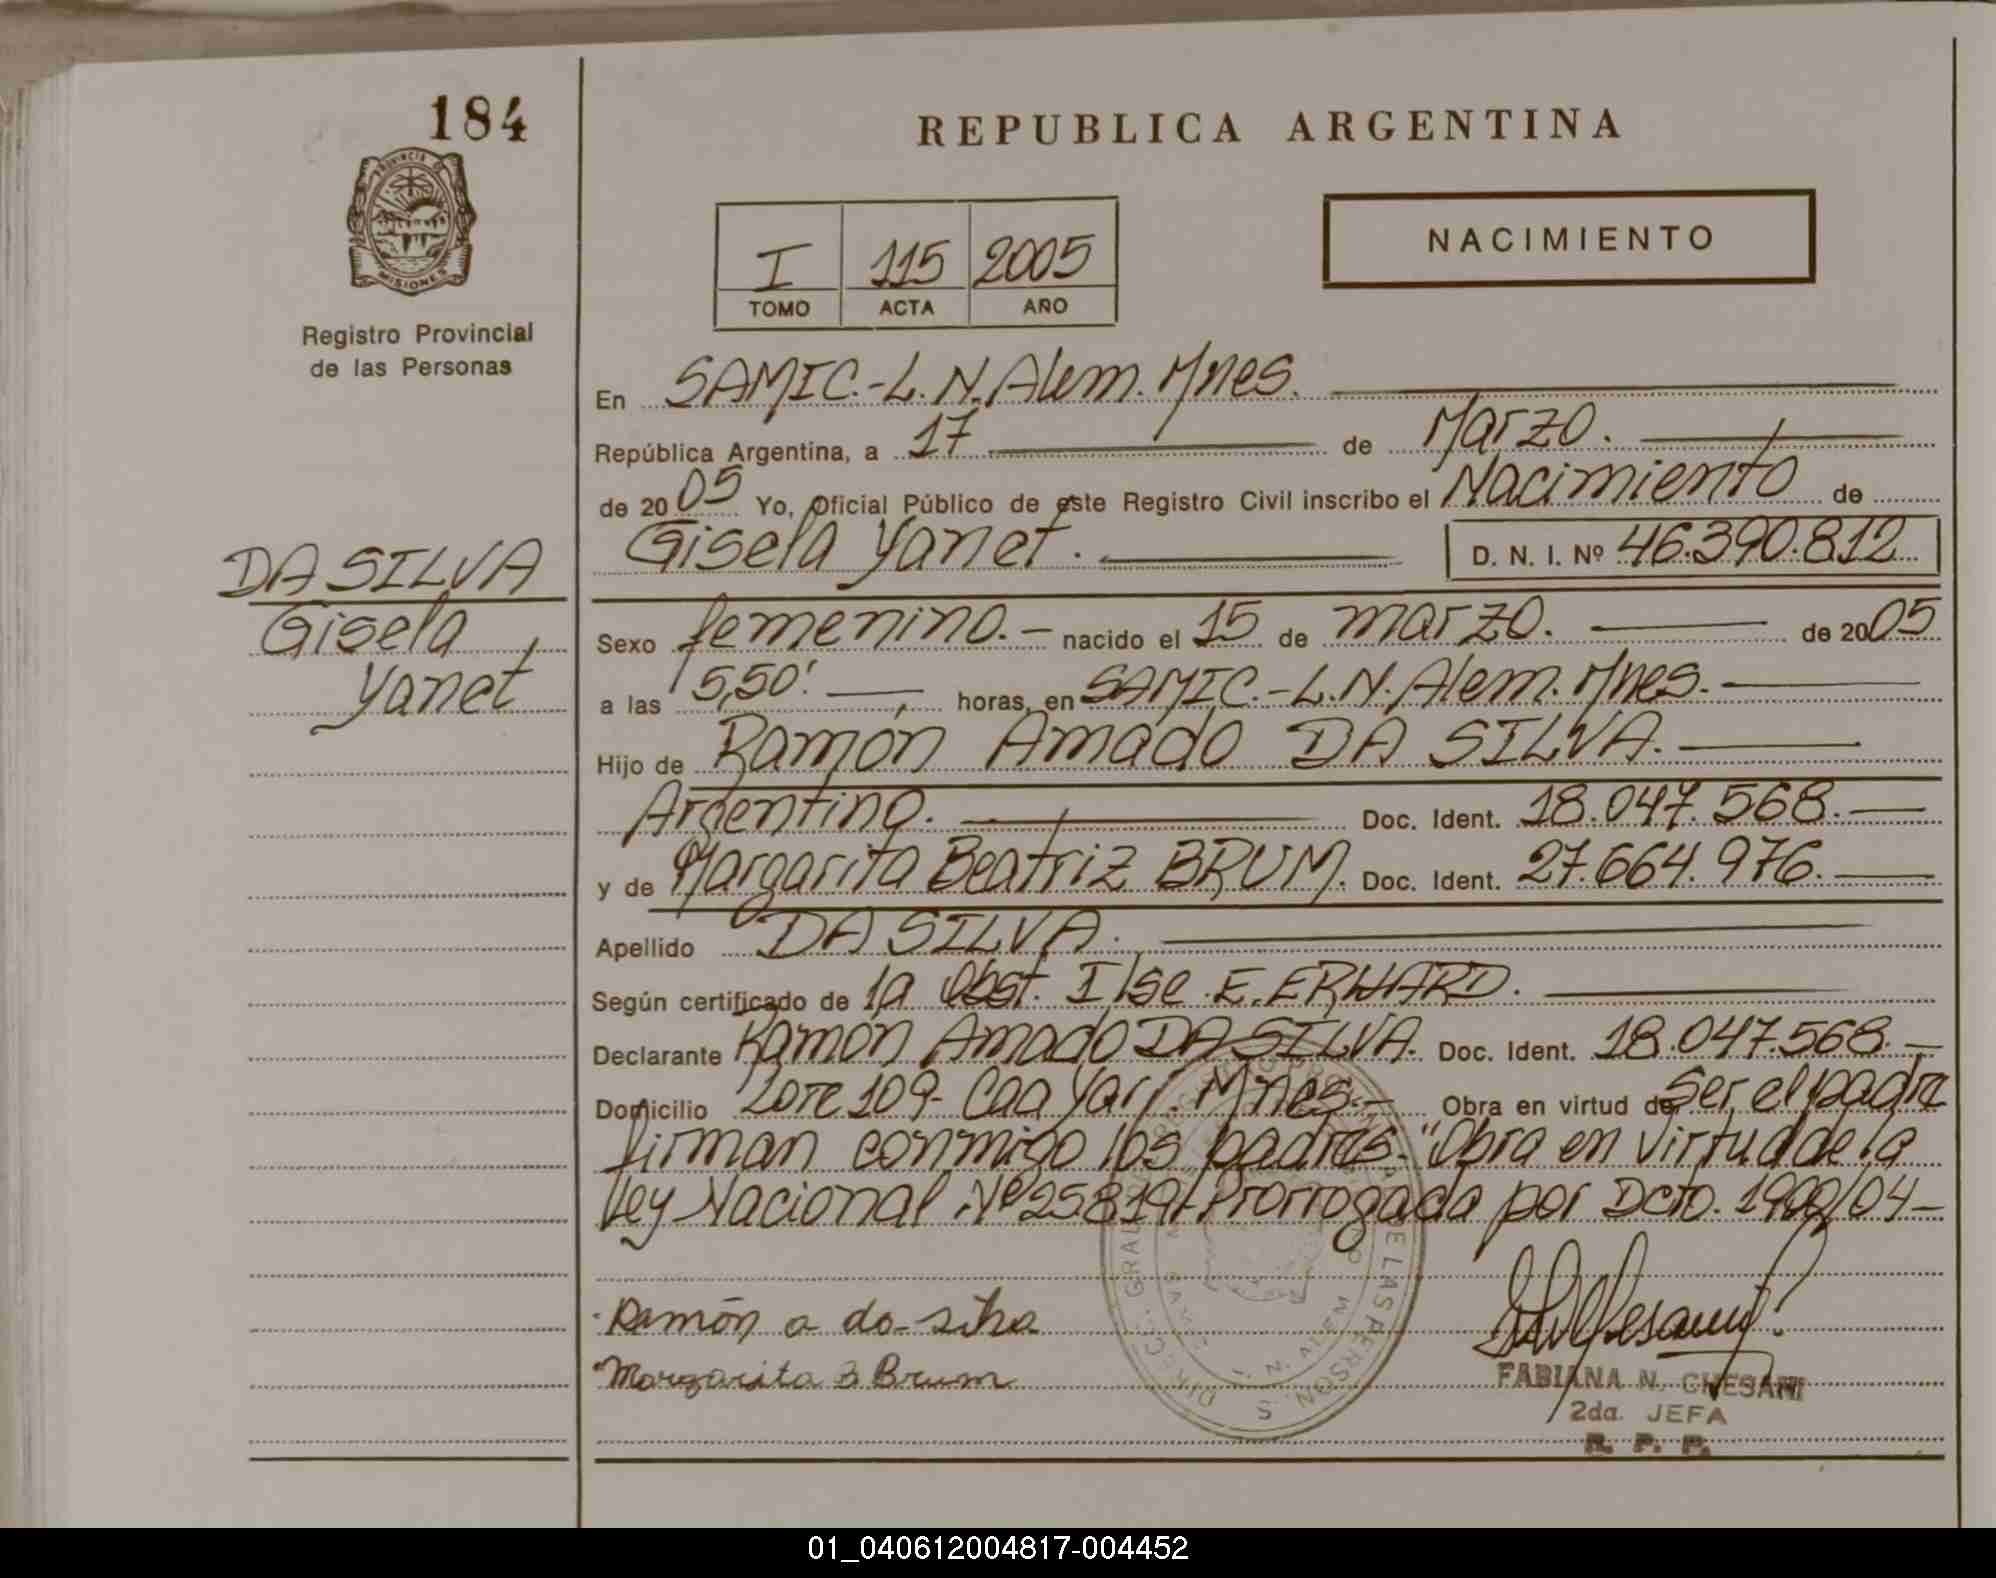 184
PROVINCIA DE
MISIONES
Registro Provincial
de las Personas
DA SILVA
Gisela
Yanet
REPUBLICA ARGENTINA
I 115 2005
TOMO ACTA AÑO
NACIMIENTO
En SAMIC.-L.N.Alem. Mnes.
República Argentina, a 17 de Marzo.
de 2005 Yo, Oficial Público de este Registro Civil inscribo el Nacimiento de
Gisela Yanet. D. N. I. Nº 46.390.812
Sexo femenino.- nacido el 15 de marzo. de 2005
a las 5,50'. horas, en SAMIC.-L.N.Alem. Mnes.
Hijo de Ramón Amado DA SILVA.
Argentino. Doc. Ident. 18.047.568.
y de Margarita Beatriz BRUM. Doc. Ident. 27.664.976.
Apellido DA SILVA.
Según certificado de la Obst. Ilse E. ERHARD.
Declarante Ramón Amado DA SILVA. Doc. Ident. 18.047.568.
Domicilio Lote 109- Caa Yarí. Mnes.- Obra en virtud de Ser el padre
firman conmigo los padres. "Obra en virtud de la
ley Nacional Nº 25819/Prorrogada por Dcto. /04-
Ramón a da silva
Margarita B Brum
FABIANA N. CHESANI
2da. JEFA
R. P. P.
DIRECC. GRAL. DE LAS PERSONAS
L. N. ALEM
01_040612004817-004452